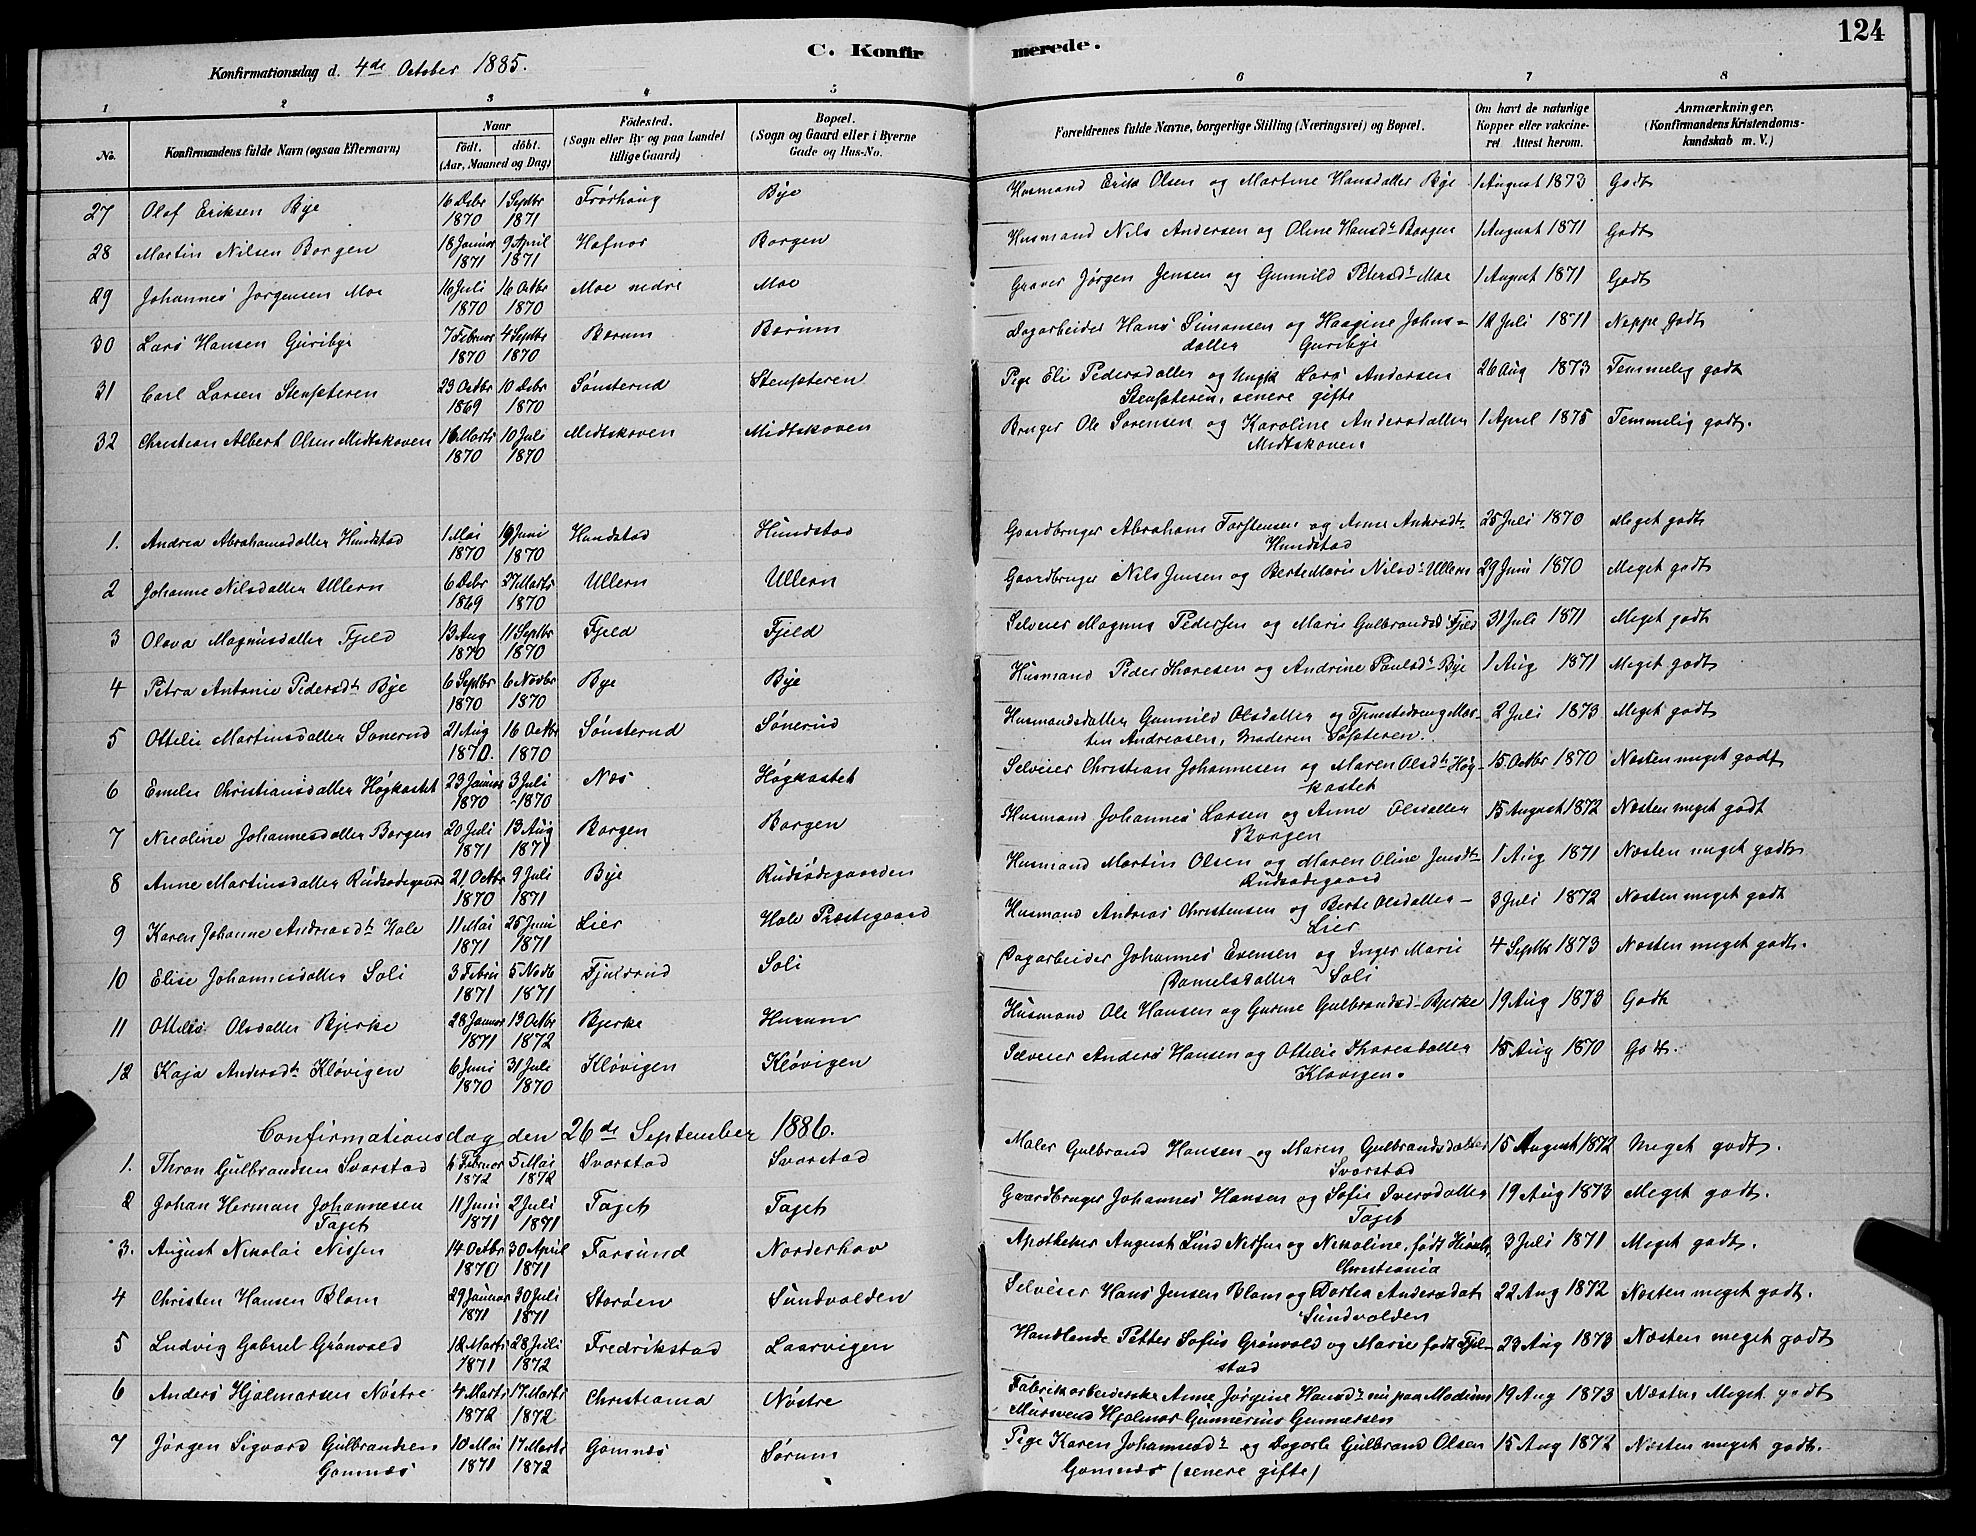 124
C. Konfirmerede.
Konfirmationsdag d. 4de October 1885.
1 2 3 4 5 6 7 8
No. Konfirmandens fulde Navn (ogsaa Efternavn) Naar født. døbt. (Aar, Maaned og Dag) Födested. (Sogn eller By og paa Landet tillige Gaard) Bopæl. (Sogn og Gaard eller i Byerne Gade og Hus-No. Forældrenes fulde Navne, borgerlige Stilling (Næringsvei) og Bopæl. Om havt de naturlige Kopper eller vakcineret Attest herom. Anmærkninger. (Konfirmandens Kristendomskundskab m. V.)
27 Olaf Eriksen Bye 16 Debr 1870 1 Septbr 1871 Frørhaug Bye Husmand Erik Olsen og Martine Hansdatter Bye 1 August 1873 Godt
28 Martin Nilsen Borgen 18 Januar 1871 9 April 1871 Hafnor Borgen Husmand Nils Andersen og Oline Hansdr Borgen 1 August 1871 Godt
29 Johannes Jørgensen Moe 16 Juli 1870 16 Octbr 1870 Moe nedre Moe Graver Jørgen Jensen og Gunnild Petersdr Moe 1 August 1871 Godt
30 Lars Hansen Guribye 7 Februar 1870 4 Septbr 1870 Berum Borum Dagarbeider Hans Simonsen og Haagine Johnsdatter Guribye 12 Juli 1871 Neppe godt
31 Carl Larsen Stensteren 23 Octbr 1869 10 Debr 1870 Sønsterud Stensteren Pige Eli Pedersdatter og Ungk Lars Andersen Stensteren, senere gifte 26 Aug 1873 Temmelig godt
32 Christian Albert Olsen Midtskoven 16 Marts 1870 10 Juli 1870 Midtskoven Midtskoven Bruger Ole Sørensen og Karoline Andersdatter Midtskoven 1 April 1875 Temmelig godt.
1. Andrea Abrahamsdatter Hundstad 1 Mai 1870 19 Juni 1870 Hundstad Hundstad Gaardbruger Abraham Torstensen og Anne Andersdr Hundstad 25 Juli 1870 Meget godt
2 Johanne Nilsdatter Ullern 6 Debr 1869 27 Marts 1870 Ullern Ullern Gaardbruger Nils Jensen og Berte Marie Nilsdr Ullern 29 Juni 1870 Meget godt
3 Olava Magnusdatter Fjeld 13 Aug 1870 11 Septbr 1870 Fjeld Fjeld Selveier Magnus Pedersen og Marie Gulbrandsdr Fjeld 31 Juli 1871 Meget godt
4 Petra Antonie Pedersdtr Bye 6 Septbr 1870 6 Novbr 1870 Bye Bye Husmand Peder Thoresen og Andrine Paulsdr Bye 1 Aug 1871 Meget godt
5 Ottilie Martinsdatter Sønerud 21 Aug 1870. 16 Octbr 1870 Sønsterud Sønerud Husmandsdatter Gunnild Olsdatter og Tjenestedreng Martin Andreasen, Moderen 2 Juli 1873 Meget godt
6 Emelie Christiansdatter Høgkastet 23 Januar 1870 3 Juli 1870 Næs Høgkastet Selveier Christian Johannesen og Maren Olsdtr Høgkastet 15 Octbr 1870 Næsten meget godt
7 Nicoline Johannesdatter Borgen 20 Juli 1871 13 Aug 1871 Borgen Borgen Husmand Johannes Larsen og Anne Olsdatter Borgen 15 August 1872 Næsten meget godt
8 Anne Martinsdatter Rudsødegaard 21 Octbr 1870 9 Juli 1871 Bye Rudsødegaarden Husmand Martin Olsen og Maren Oline Jensdtr Rudsødegaard 1 Aug 1871 Næsten meget godt
9 Karen Johanne Andreasdtr Hole 11 Mai 1871 25 Juni 1871 Lier Hole Præstegaard Husmand Andreas Christensen og Berte Olsdatter Lier 3 Juli 1872 Næsten meget godt
10 Elise Johannesdatter Soli 3 Febru 1871 5 Novb 1871 Fjulsrud Soli Dagarbeider Johannes Evensen og Inger Marie Danielsdatter Soli 4 Septbr 1873 Næsten meget godt.
11 Ottilia Olsdatter Bjerke 28 Januar 1871 13 Octbr 1872 Bjerke Husum Husmand Ole Hansen og Gurine Gulbrandsd. Bjerke 19 Aug 1873 Godt
12 Kaja Andersdtr Kløvigen 6 Juni 1870 31 Juli 1870 Kløvigen Kløvigen Selveier Anders Hansen og Ottilie Thoresdatter Kløvigen. 18 Aug 1870 Godt.
Confirmationsdag den 26de September 1886.
1. Thron Gulbrandsen Svarstad 6 Februar 1872 5 Mai 1872 Svarstad Svarstad Maler Gulbrand Hansen og Maren Gulbrandsdatter Svarstad 15 August 1872 Meget godt.
2 Johan Herman Johannesen Fajet 11 Juni 1871 2 Juli 1871 Fajet Fajet Gaardbruger Johannes Hansen og Sofie Iversdatter Fajet 19 Aug 1873 Meget godt.
3. August Nikolai Nissen 14 Octbr 1870 30 April 1871 Farsund Norderhov Apotheker August Lind Nissen og Nikoline, født Christiania 3 Juli 1871 Meget godt.
4 Christen Hansen Blom 29 Januar 1871 30 Juli 1871 Storøen Sundvolden Selveier Hans Jensen Blom og Dorthea Andersdat Sundvolden 22 Aug 1872 Næsten meget godt.
5 Ludvig Gabriel Grønvold 12 Marts 1871 28 Juli 1872 Fredrikstad Laarvigen Handlende Petter Sofus Grønvold og Marie født Fjelstad 23 Aug 1873 Næsten meget godt
6 Anders Hjalmarsen Nøstre 4 Marts 1872 17 Marts 1872 Christiania Nøstre Fabrikarbeiderske Anne Jørgine Hansdr nu paa Modum Mursvend Hjalmar Gunnerius Gunnersen 19 Aug 1873 Næsten Meget godt
7 Jørgen Sigvard Gulbrandsen Gomnæs 10 Mai 1871 17 Marts 1872 Gomnæs Sørum Pige Karen Johannesdr og Dagarb Gulbrand Olsen Gomnæs (senere gifte) 15 Aug 1872 Næsten meget godt.